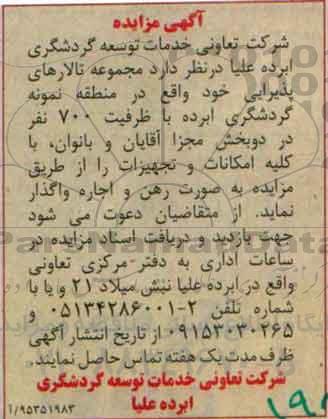 آگهی مزایده
شرکت تعاونی خدمات توسعه گردشگری
ابرده علیا درنظر دارد مجموعه تالارهای
پذیرایی خود واقع در منطقه نمونه
گردشگری ابرده با ظرفیت ۷۰۰ نفر
در دوبخش مجزا آقایان و بانوان، با
کلیه امکانات و تجهیزات را از طریق
مزایده به صورت رهن و اجاره واگذار
نماید. از متقاضیان دعوت می شود
جهت بازدید و دریافت اسناد مزایده در
ساعات اداری به دفتر مرکزی تعاونی
واقع در ابرده علیا نبش میلاد ۲۱ و یا با
شماره تلفن ۲-۰۵۱۳۴۲۸۶۰۰۱ و
۰۹۱۵۳۰۳۰۲۶۵ از تاریخ انتشار آگهی
ظرف مدت یک هفته تماس حاصل نمایند.
شرکت تعاونی خدمات توسعه گردشگری
ابرده علیا
۱/۹۵۳۵۱۹۸۳